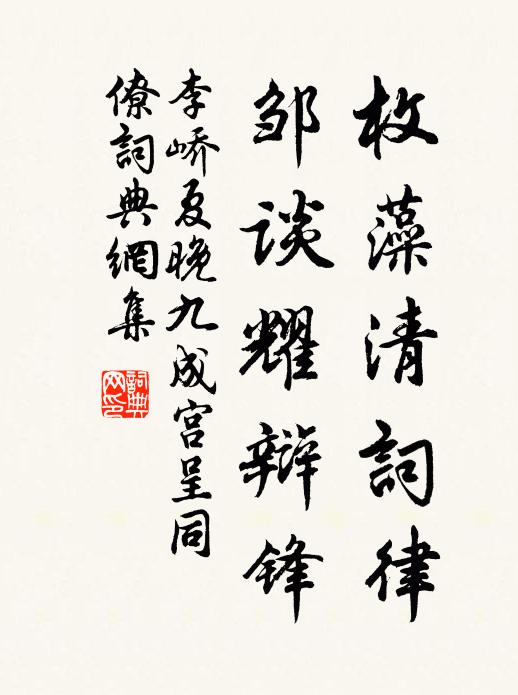 枚藻清詞律
邹谈耀辩锋
李峤夏晚九成宫呈同
僚詞典網集
詞典
网印